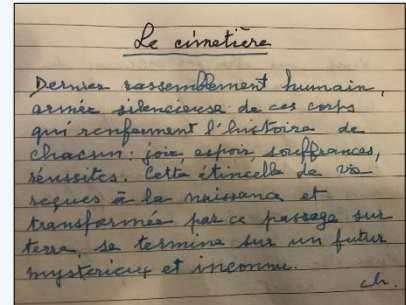 Le cimetière
Dernier rassemblement humain,
armée silencieuse de ces corps
qui renferment l'histoire de
chacun : joie, espoir, souffrances,
réussites. Cette étincelle de vie
reçues à la naissance et
transformée par ce passage sur
terre, se termine sur un futur
mystérieux et inconnu.
ch.